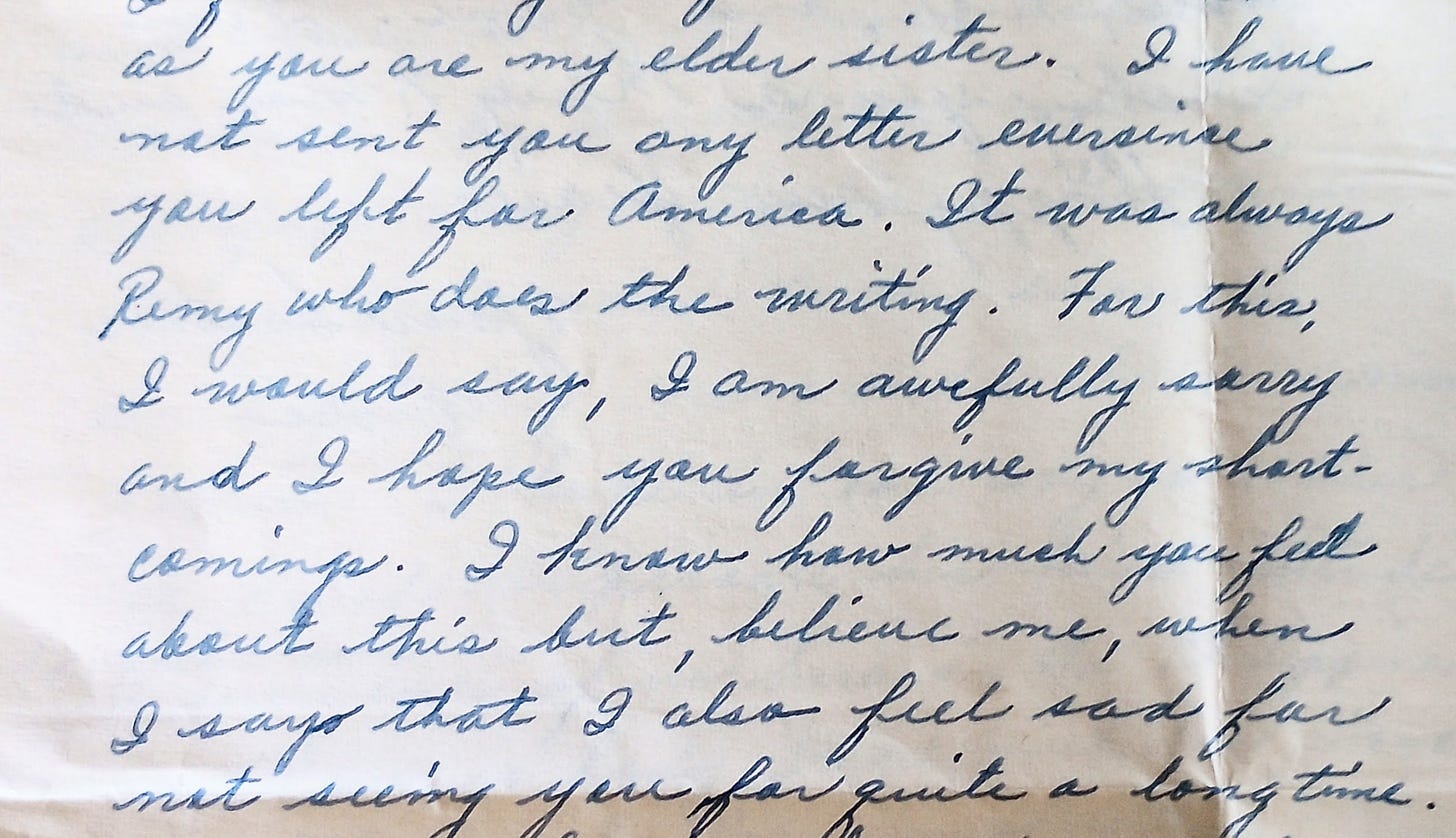 as you are my elder sister. I have
not sent you any letter eversince
you left for America. It was always
Remy who does the writing. For this,
I would say, I am awefully sorry
and I hope you forgive my short-
comings. I know how much you feel
about this but, believe me, when
I say that I also feel sad for
not seeing you for quite a long time.